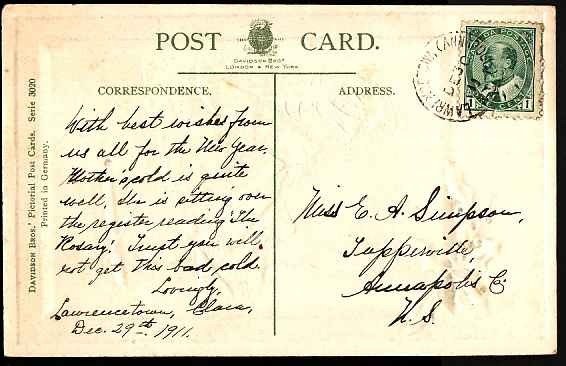 POST CARD.
DAVIDSON BROS.
LONDON & NEW YORK
CORRESPONDENCE.
ADDRESS.
CANADA POSTAGE
1 1
With best wishes from
us all for the New Year.
Mother's cold is quite
well, she is sitting over
the register reading "The
Rosary." Trust you will
not get this bad cold.
Lovingly,
Lawrencetown, Clara,
Dec. 29th. 1911.
Miss E. A. Simpson,
Tupperville,
Annapolis Co
N.S.
DAVIDSON BROS.' Pictorial Post Cards. Serie 3020
Printed in Germany.